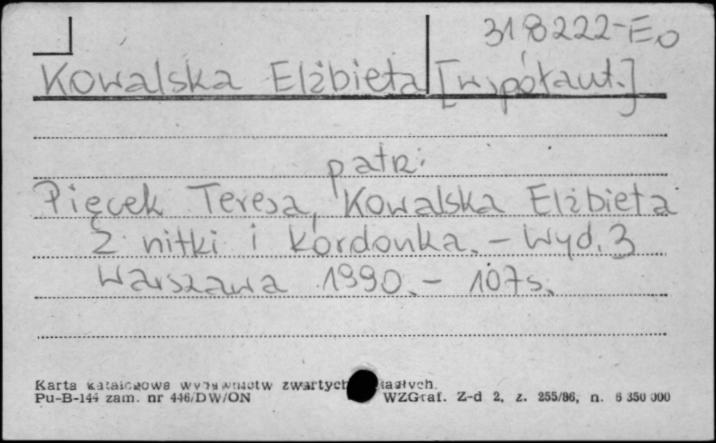 318222-E.0
Kowalska Elżbieta [współaut.]
patrz:
Pięcek Teresa, Kowalska Elżbieta
Z nitki i kordonka. - Wyd. 3
Warszawa 1990. - 107 s.
Karta katalogowa wydawnictw zwartych ciągłych.
Pu-B-144 zam. nr 446/DW/ON WZGraf. Z-d 2, z. 255/86, n. 6 350 000